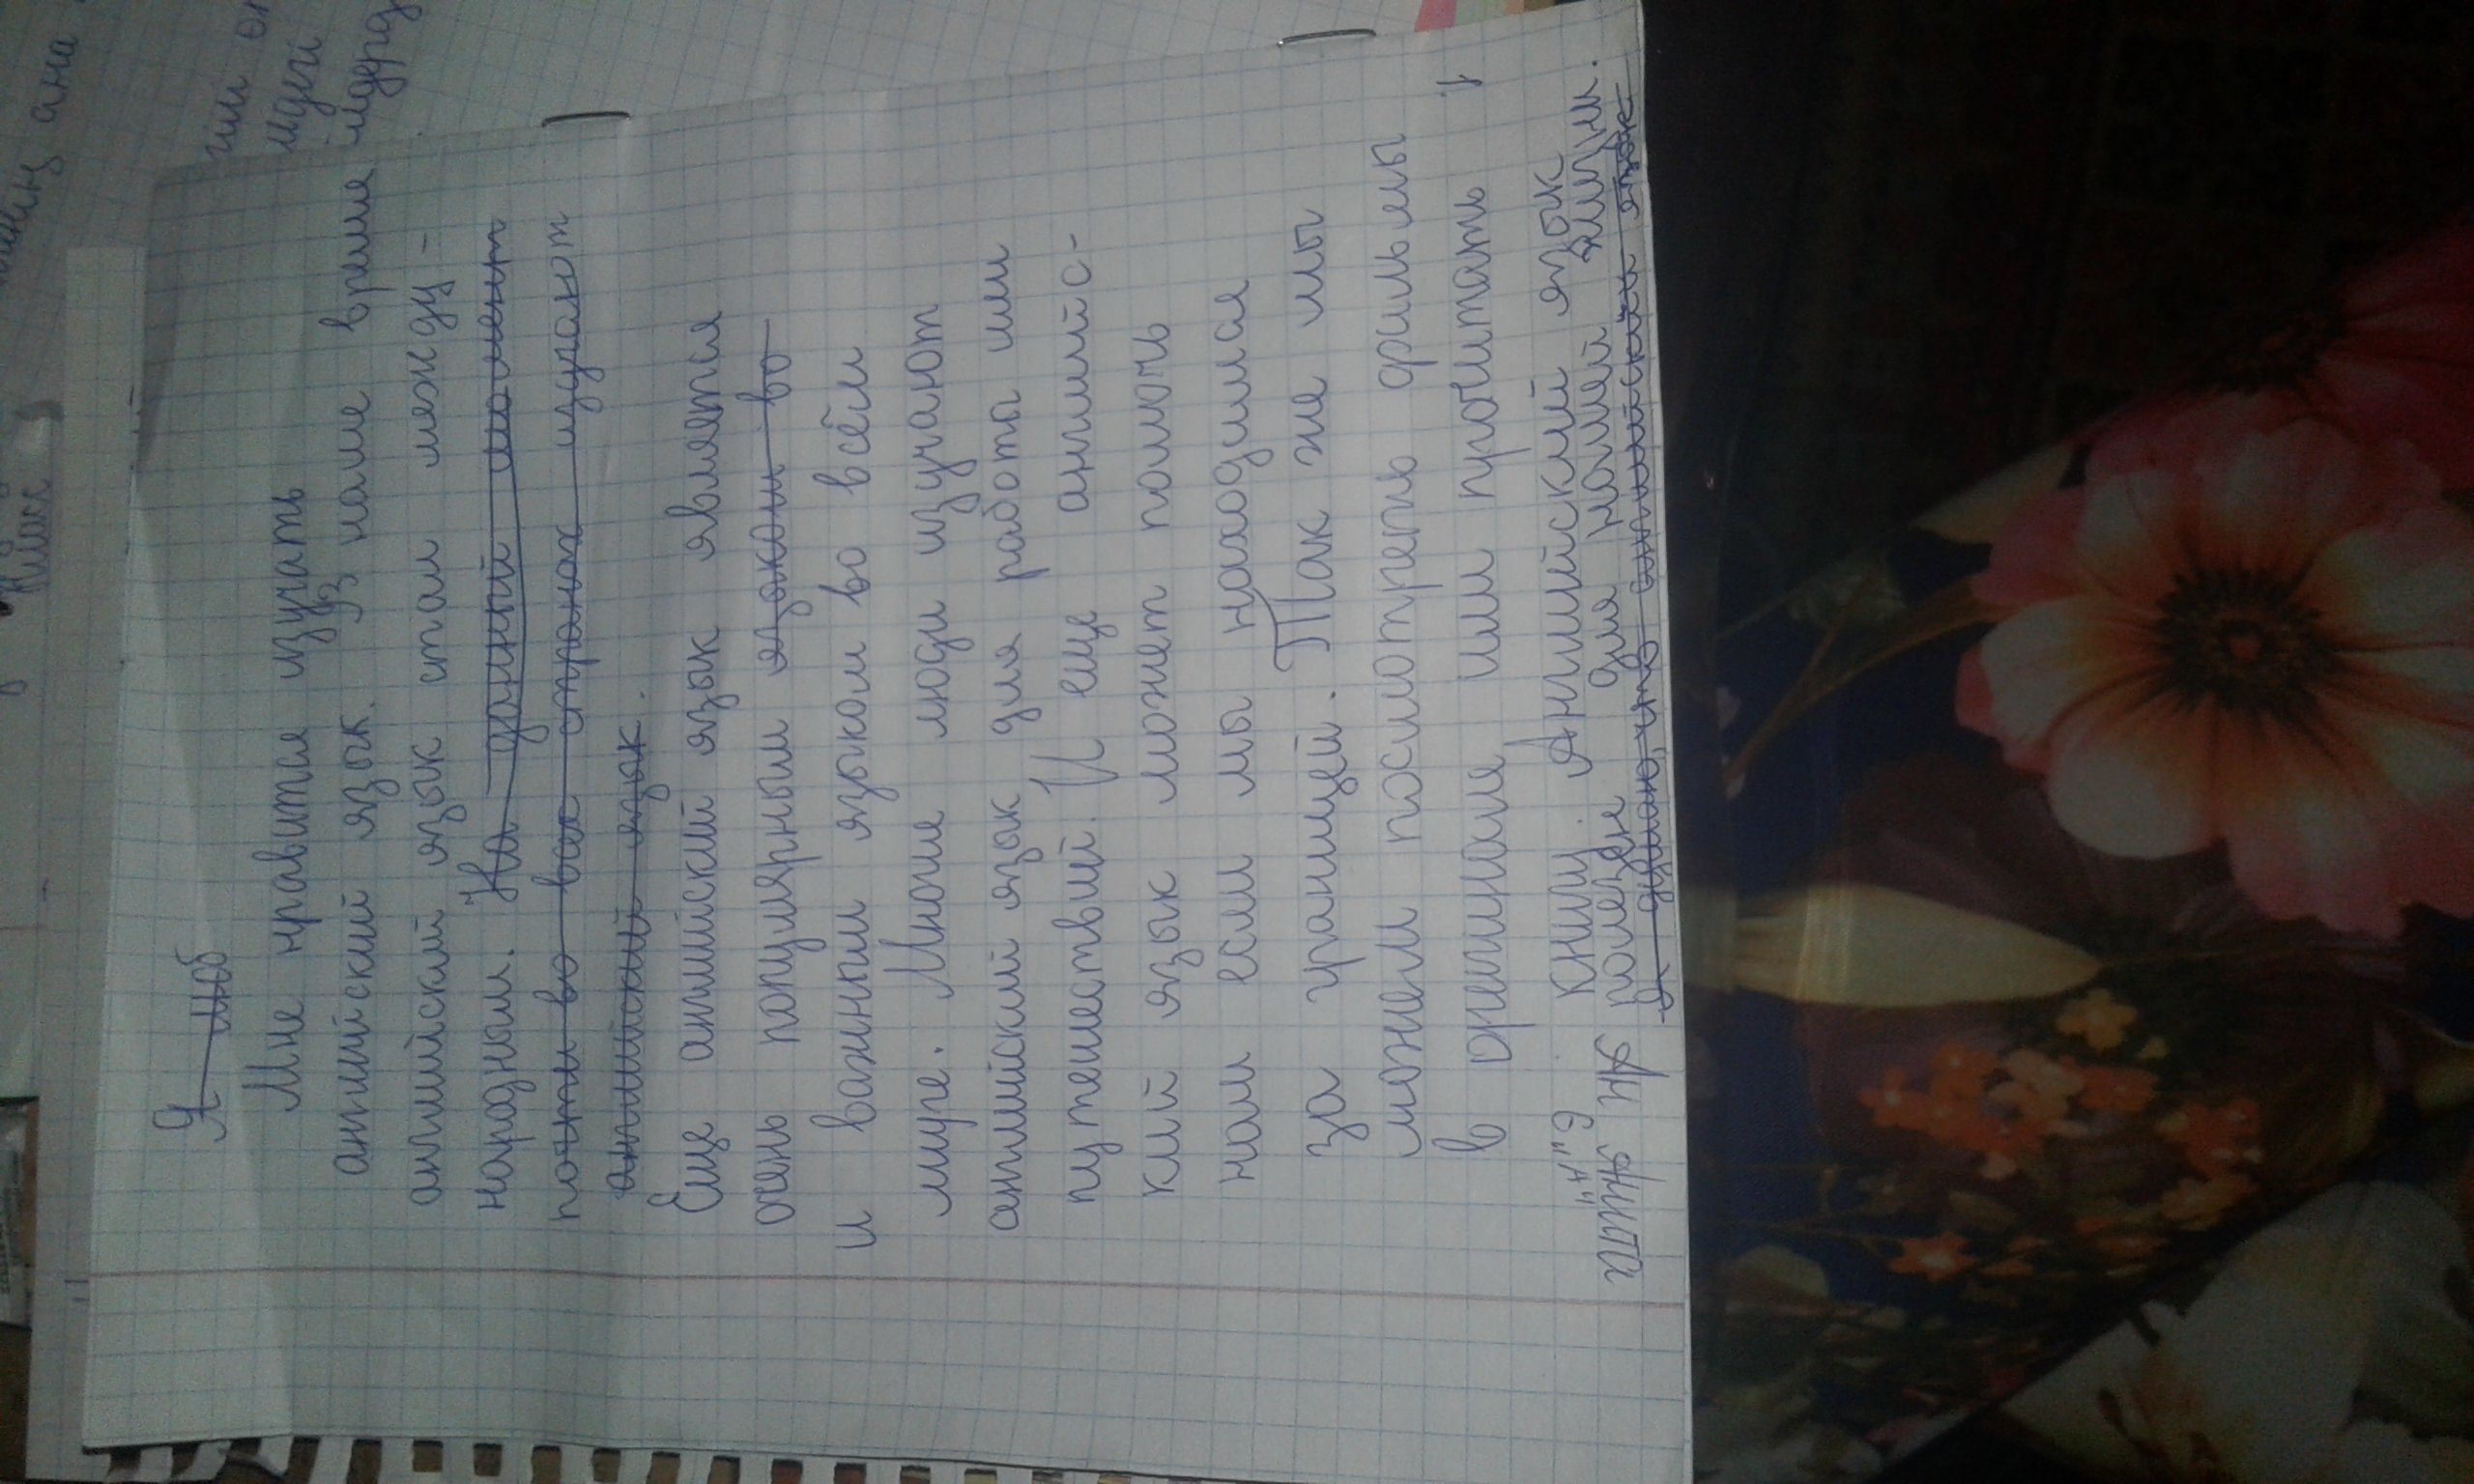 Я люб
Мне нравится изучать
английский язык. В наше время
английский язык стал между-
народным. На данный момент
почти во всех странах изучают
английский язык.
Еще английский язык является
очень популярным языком во
и важным языком во всём
мире. Многие люди изучают
английский язык для работы или
путешествий. И еще английс-
кий язык может помочь
нам если мы находимся
за границей. Так же мы
можем посмотреть фильмы
в оригинале или прочитать
книги. Английский язык
полезен для нашей жизни.
Я думаю, что английский язык